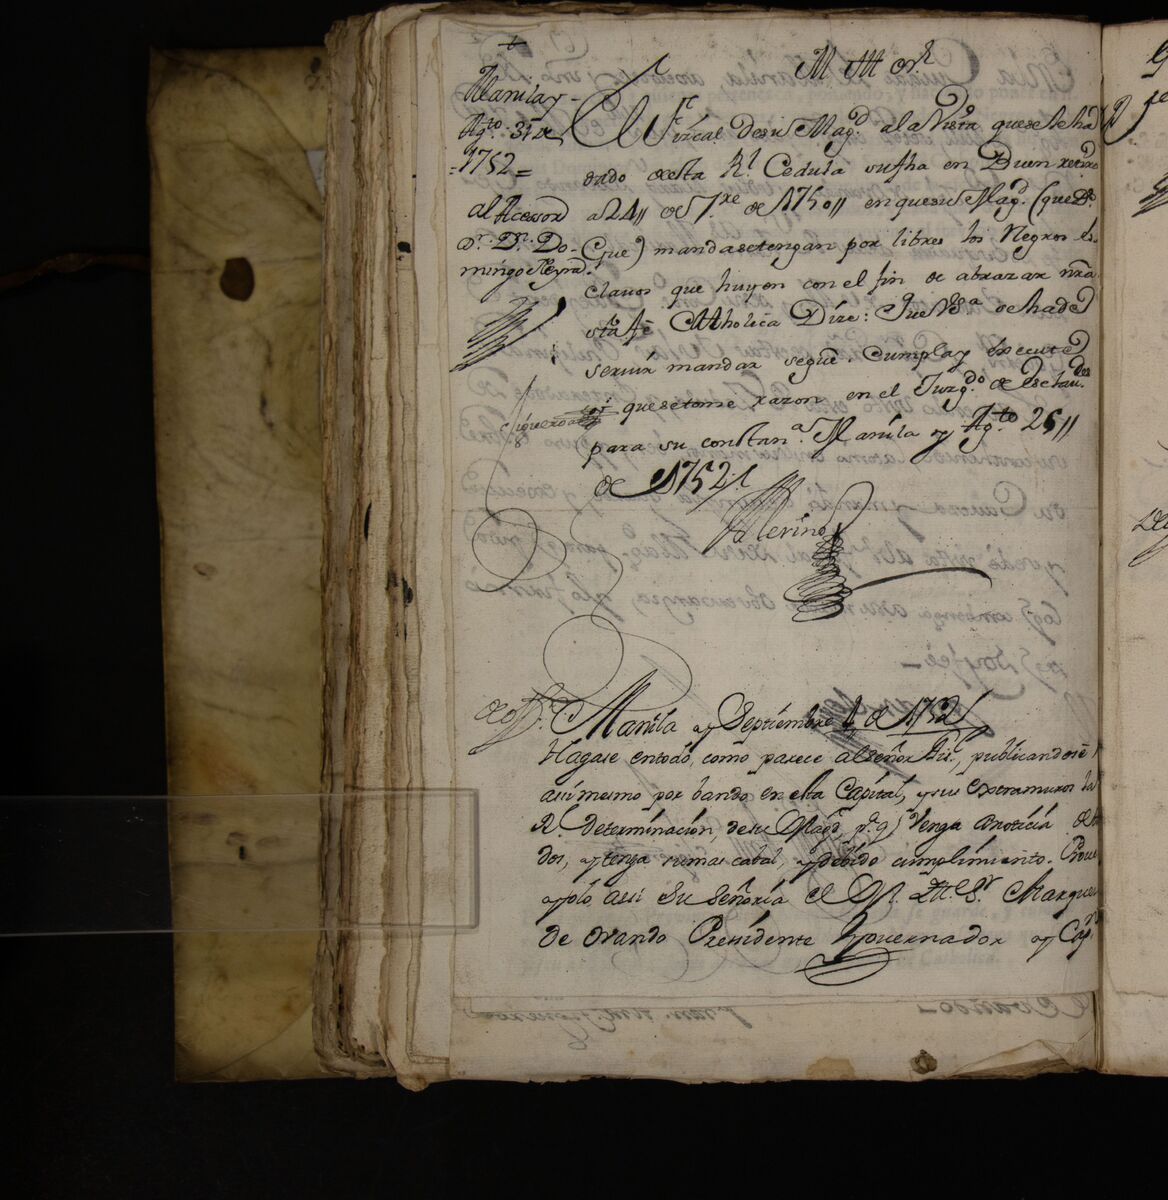 Manila y
Agto. 31 de
1752=
al Acessor
Dr. Dn. Do-
mingo Neyra.
M Ill or.
El Fiscal de su Magd. a la Vista que se le ha
dado de esta Rl. Cedula su fha en Buen retiro
a 24,, de 7.re de 1750,, en que su Magd. (que Ds.
Gue) manda se tengan por libres los Negros es-
clavos que huyen con el fin de abrazar nra
sta fé Catholica Dize: Que VSa.
servir mandar segue. Cumpla y Execute
y que se tome razon en el Juzgdo. de
para su constana. Manila y Agto. 26,,
de 1752,,
Merino
Figueroa
Manila y Septiembre 4 de 1752
Hagase en todo, como parece al señor Fis.l, publicandose
assi mesmo por bando en esta Capital, y sus extramuros la
Rl. determinación, de su Magd, pa. q) Venga a noticia de to
dos, y tenga su mas cabal, y debido cumplimiento. Prove
yolo assi Su Señoría el M. Ill. Sr. Marques
de Ovando Presidente Governador y Capn.